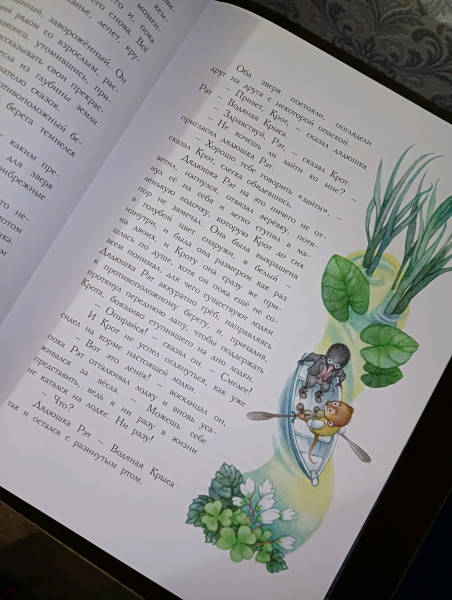 кем-
момен-
то и, пока
ачего снова. Всё
лепет, кру-
ный, заворожённый. Он
рядом со взрослым рас-
утомившись, при-
сказывать свои прекрас-
из глубины земли
сказок.
ротивоположный бе-
берега темнелся
каким пре-
для зверя
прибрежные
то не-
Оба зверя постояли, поглядели
друг на друга с некоторой опаской.
— Привет, Крот, — сказал дядюшка
Рэт, — Водяная Крыса.
— Здравствуй, Рэт, — сказал Крот.
— Не хочешь ли зайти ко мне? —
пригласил дядюшка Рэт.
— Хорошо тебе говорить «зайти», —
сказал Крот, слегка обидевшись.
Дядюшка Рэт на это ничего не от-
ветил, нагнулся, отвязал верёвку, потя-
нул её на себя и легко ступил в ма-
ленькую лодочку, которую Крот до сих
пор не замечал. Она была выкрашена
в голубой цвет снаружи, в белый —
изнутри, и была она размером как раз
на двоих, и Кроту она сразу же при-
шлась по душе, хотя он пока ещё не со-
всем понимал, для чего существуют лодки.
Дядюшка Рэт аккуратно грёб, направляясь
к противоположному берегу, и, причалив,
протянул переднюю лапу, чтобы поддержать
Крота, боязливо ступившего на дно лодки.
— Опирайся! — сказал он. — Смелее!
И Крот не успел оглянуться, как уже
сидел на корме настоящей лодки.
— Вот это денёк! — воскликнул он,
пока Рэт отталкивал лодку и вновь уса-
живался за вёсла. — Можешь себе
представить, ведь я ни разу в жизни
не катался на лодке. Ни разу!
— Что?
Дядюшка Рэт — Водяная Крыса
так и остался с разинутым ртом.